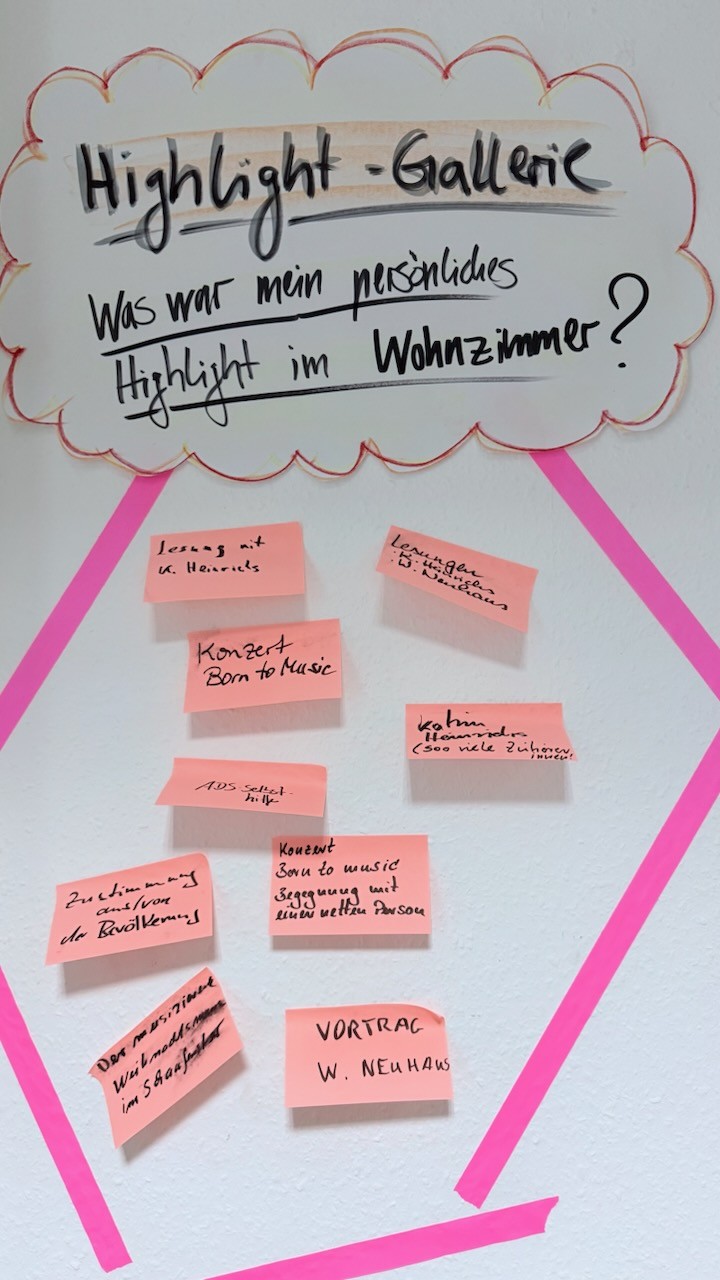 Highlight-Gallerie
Was war mein persönliches
Highlight im Wohnzimmer?
Lesung mit
K. Heinrichs
Lesungen
K. Heinrichs
W. Neuhaus
Konzert
Born to Music
Katrin
Heinrichs
(500 viele Zuhörer
innen!
ADS-Selbst-
hilfe
Konzert
Born to music
Begegnung mit
einer netten Person
Zustimmung
aus/von
der Bevölkerung
Der musizierende
Weihnachtsmann
im Schaufenster
VORTRAG
W. NEUHAUS